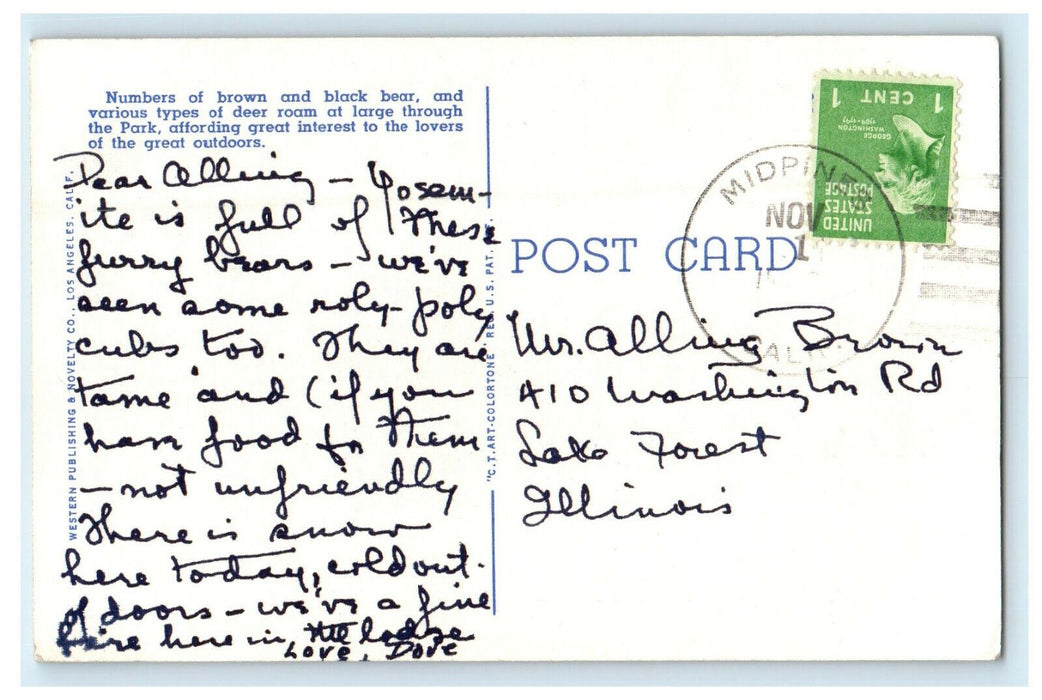 Numbers of brown and black bear, and
various types of deer roam at large through
the Park, affording great interest to the lovers
of the great outdoors.
Dear Alling – Yosem-
ite is full of these
furry bears – we've
seen some roly-poly
cubs too. They are
tame and (if you
have food for them
– not unfriendly
There is snow
here today, cold out-
of doors – we've a fine
fire here in the lodge
Love, Dove
WESTERN PUBLISHING & NOVELTY CO., LOS ANGELES, CALIF.
"C.T. ART-COLORTONE" REG. U.S. PAT.
POST CARD
Mr. Alling Brown
410 Washington Rd
Lake Forest
Illinois
MIDPINES
NOV
1
CALIF.
1 CENT 1
GEORGE
WASHINGTON
1789-1797
UNITED
STATES
POSTAGE